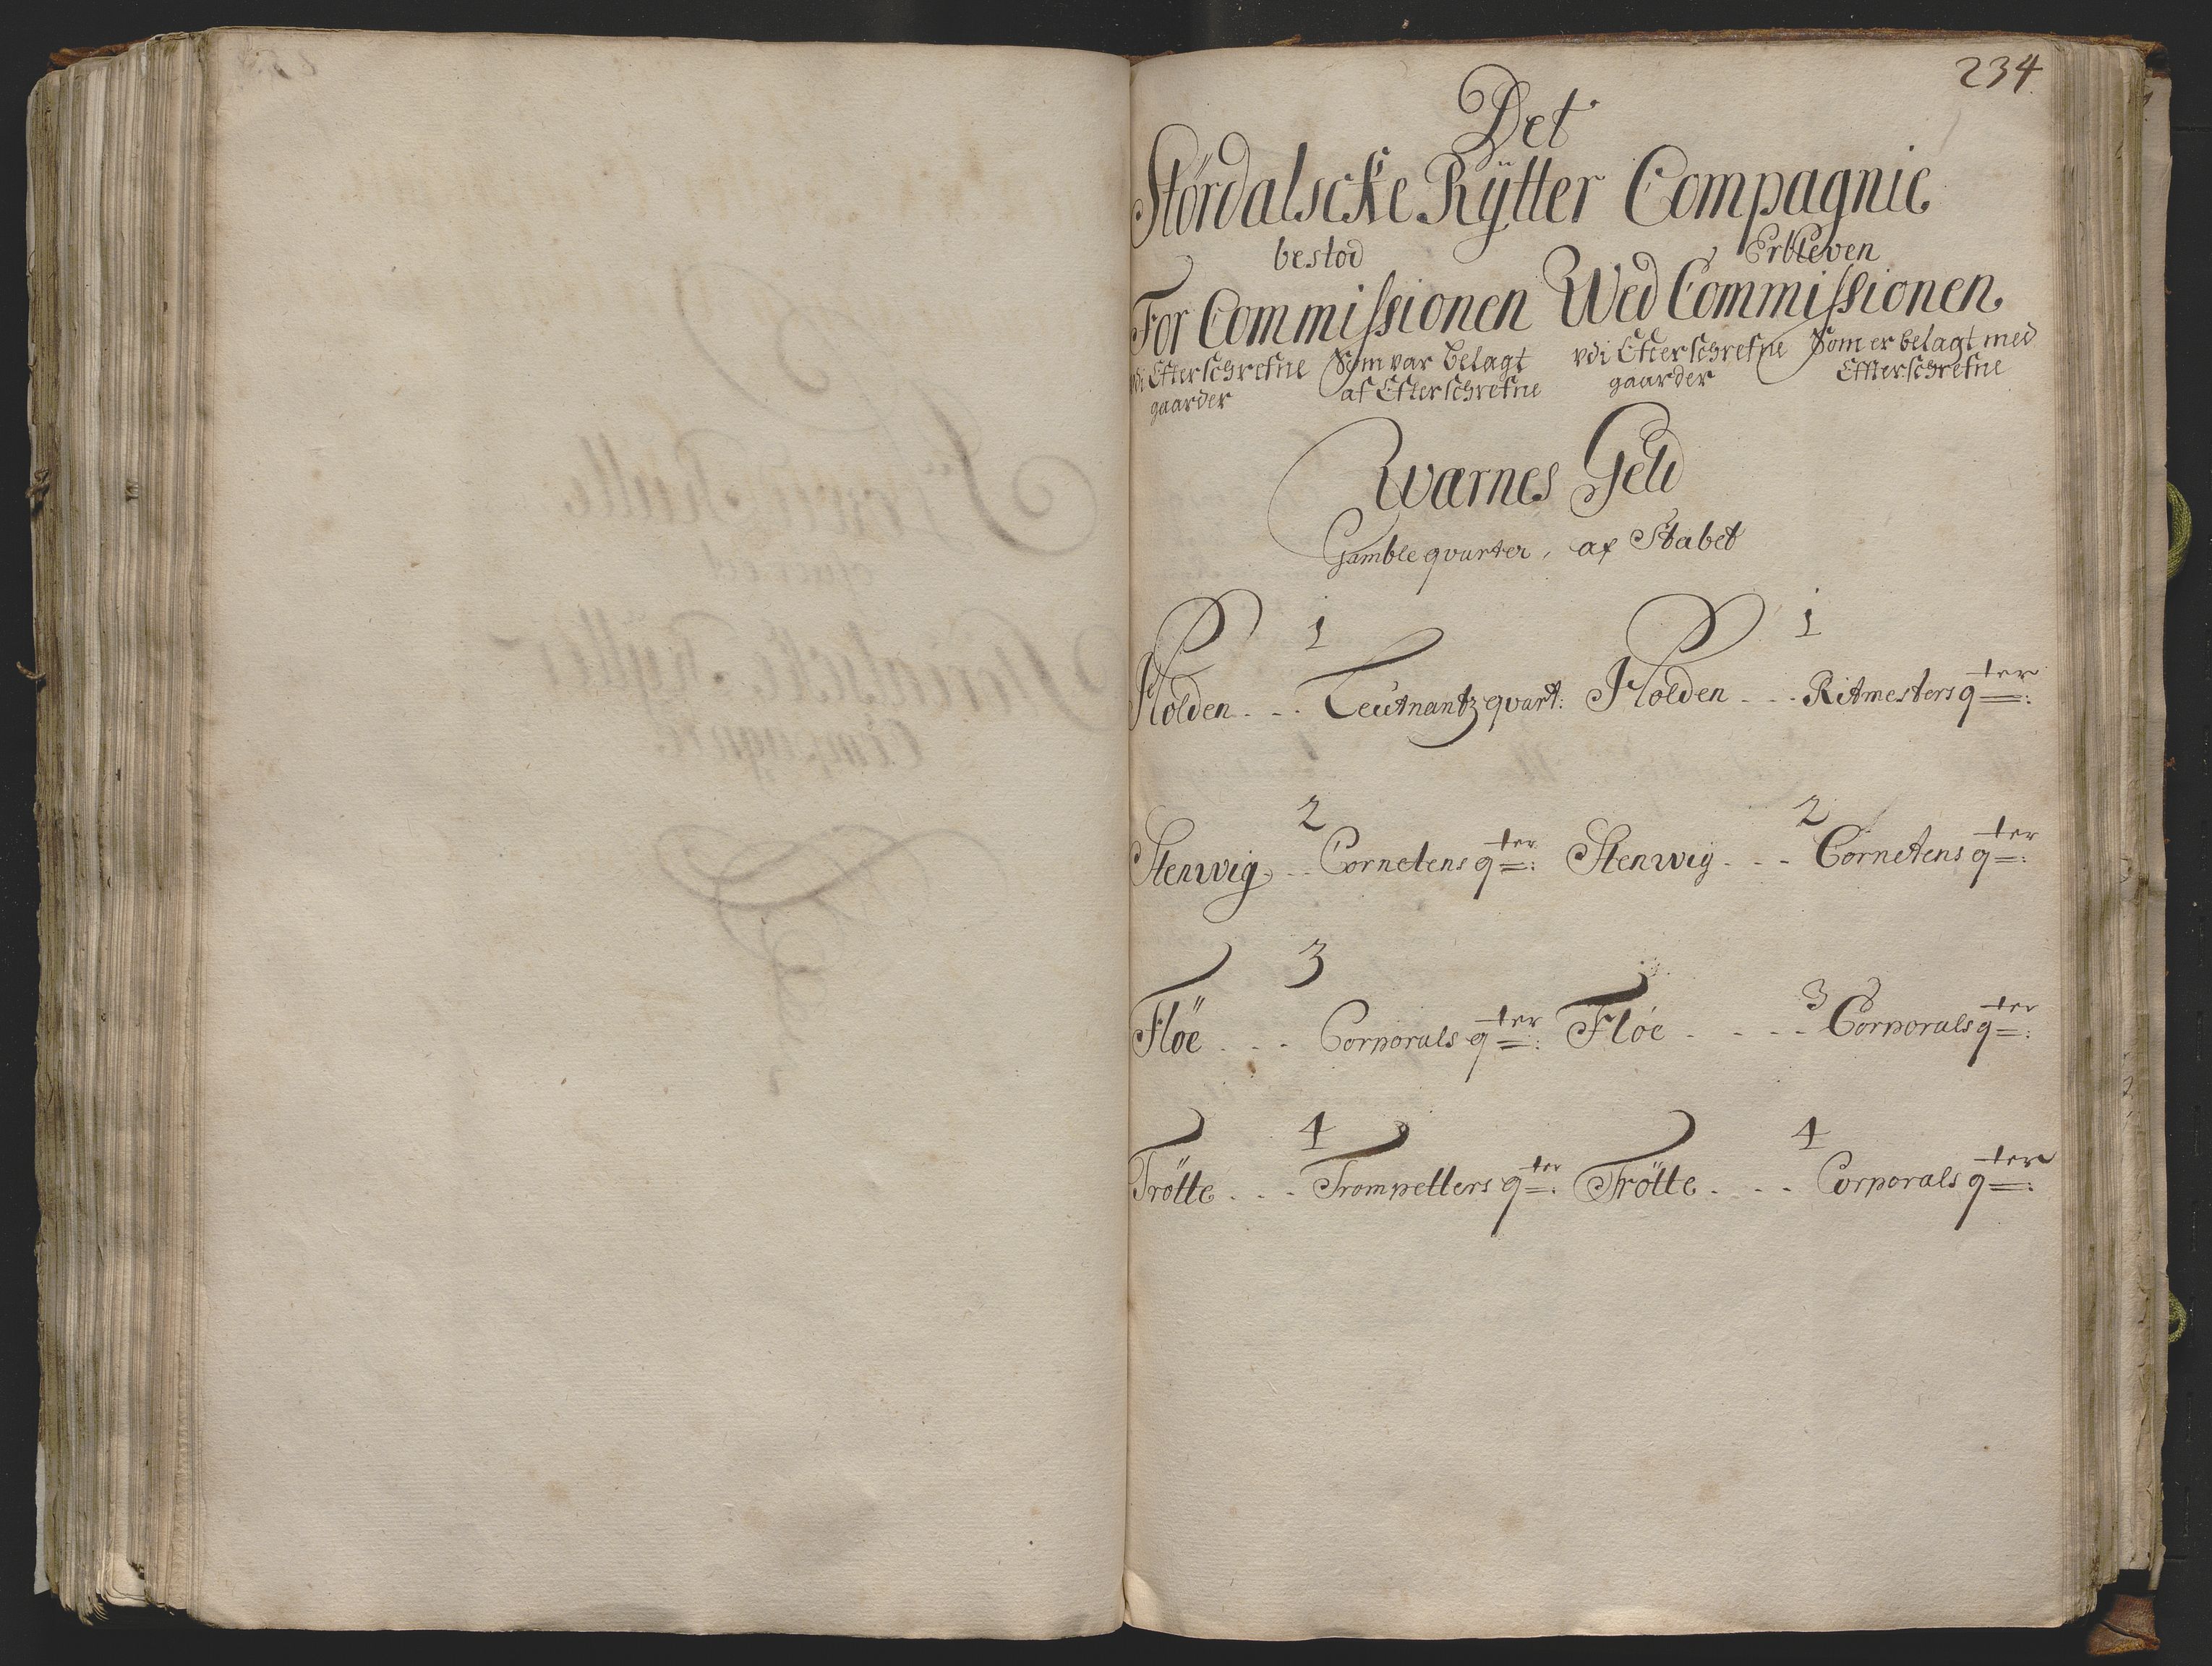 234
Det
Stördalscke Rÿtter Compagnie
bestod Erbleven
For Commissionen Wed Commissionen
vdi Efterschrefne Som var belagt vdi Efterschrefne Som er belagt med
gaarder af Efterschrefne gaarder Effterschrefne
Qwarnes Geld
Gamble qvarter, af Stabet
1 1
Holden - - Leutnantz qvart: Holden - - Ritmesters qter:
2 2
Stenwig - - Cornetens qter: Stenwig - - - Cornetens qter:
3 3
Flöe - - - Corporals qter: Flöe - - - - Corporals qter:
4 4
Trötte - - - Trompetters qter: Trötte - - - Corporals qter: